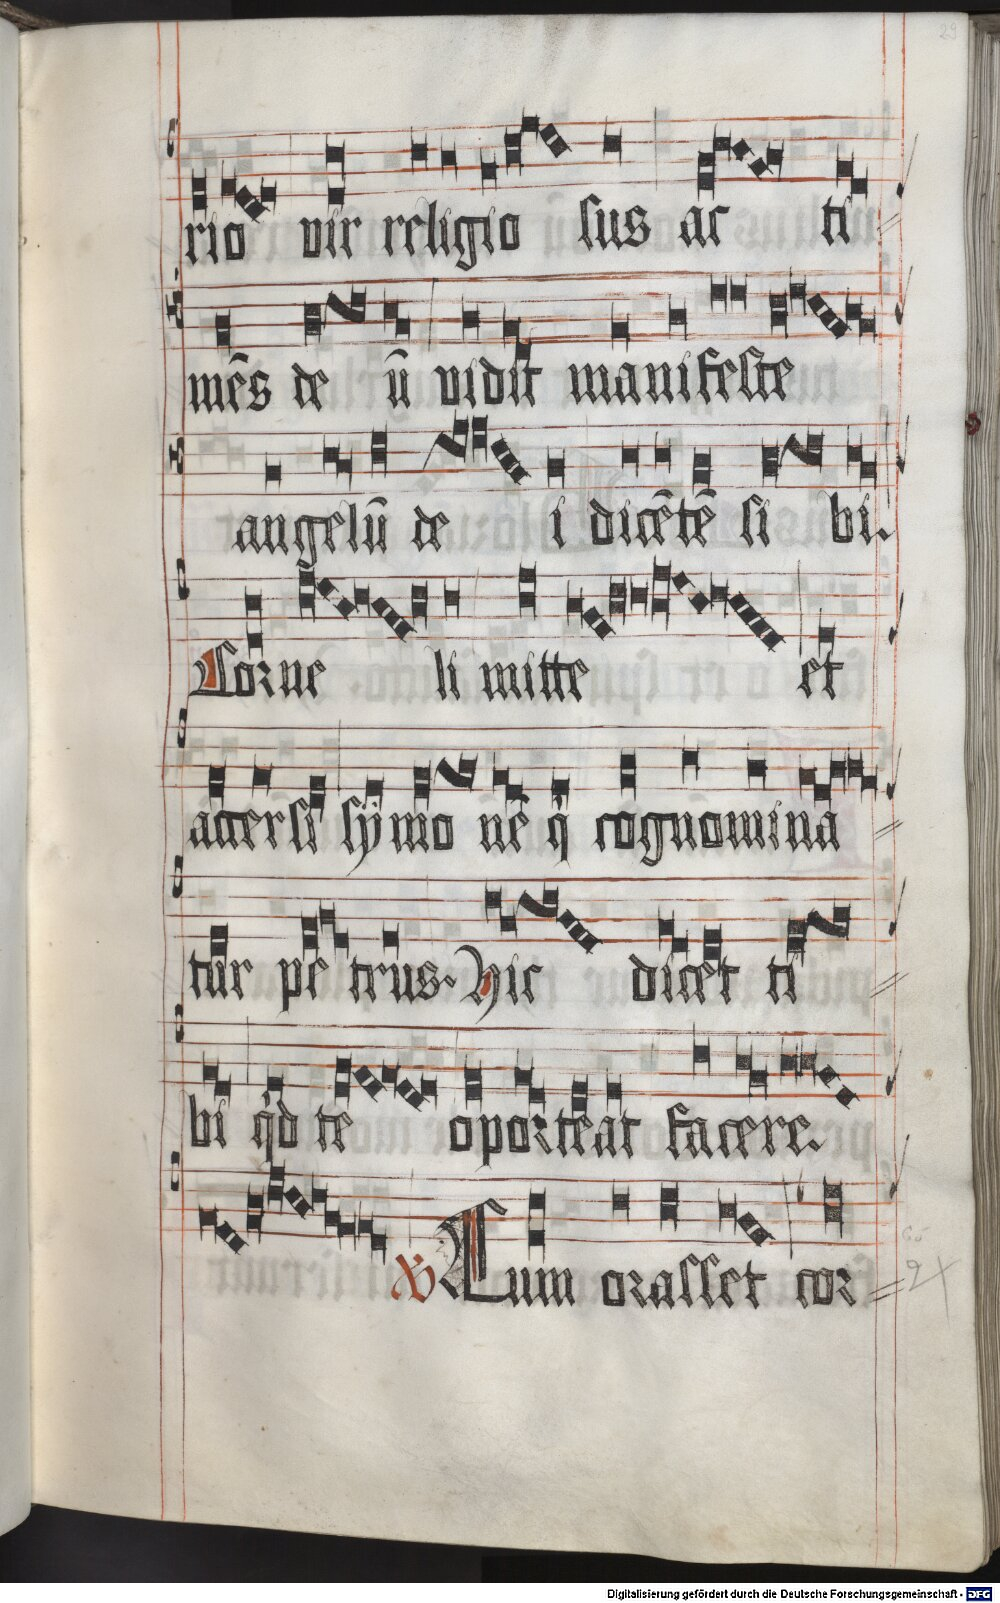 29
rio vir religio sus ac ti
mēs de ū vidit manifeste
angelū de i dicētē si bi.
Corne li mitte et
accersi sÿmo nē q̇ cognomina
tur pe trus. Hic dicet ti
bi qd te oporteat facere.
℣ Cum orasset cor
Digitalisierung gefördert durch die Deutsche Forschungsgemeinschaft - DFG